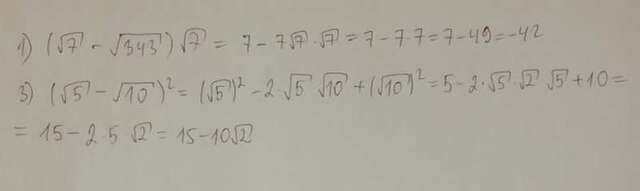 1) (√7 - √343)√7 = 7 - 7√7·√7 = 7 - 7·7 = 7 - 49 = -42
3) (√5 - √10)² = (√5)² - 2·√5 √10 + (√10)² = 5 - 2·√5·√2 √5 + 10 =
= 15 - 2·5 √2 = 15 - 10√2